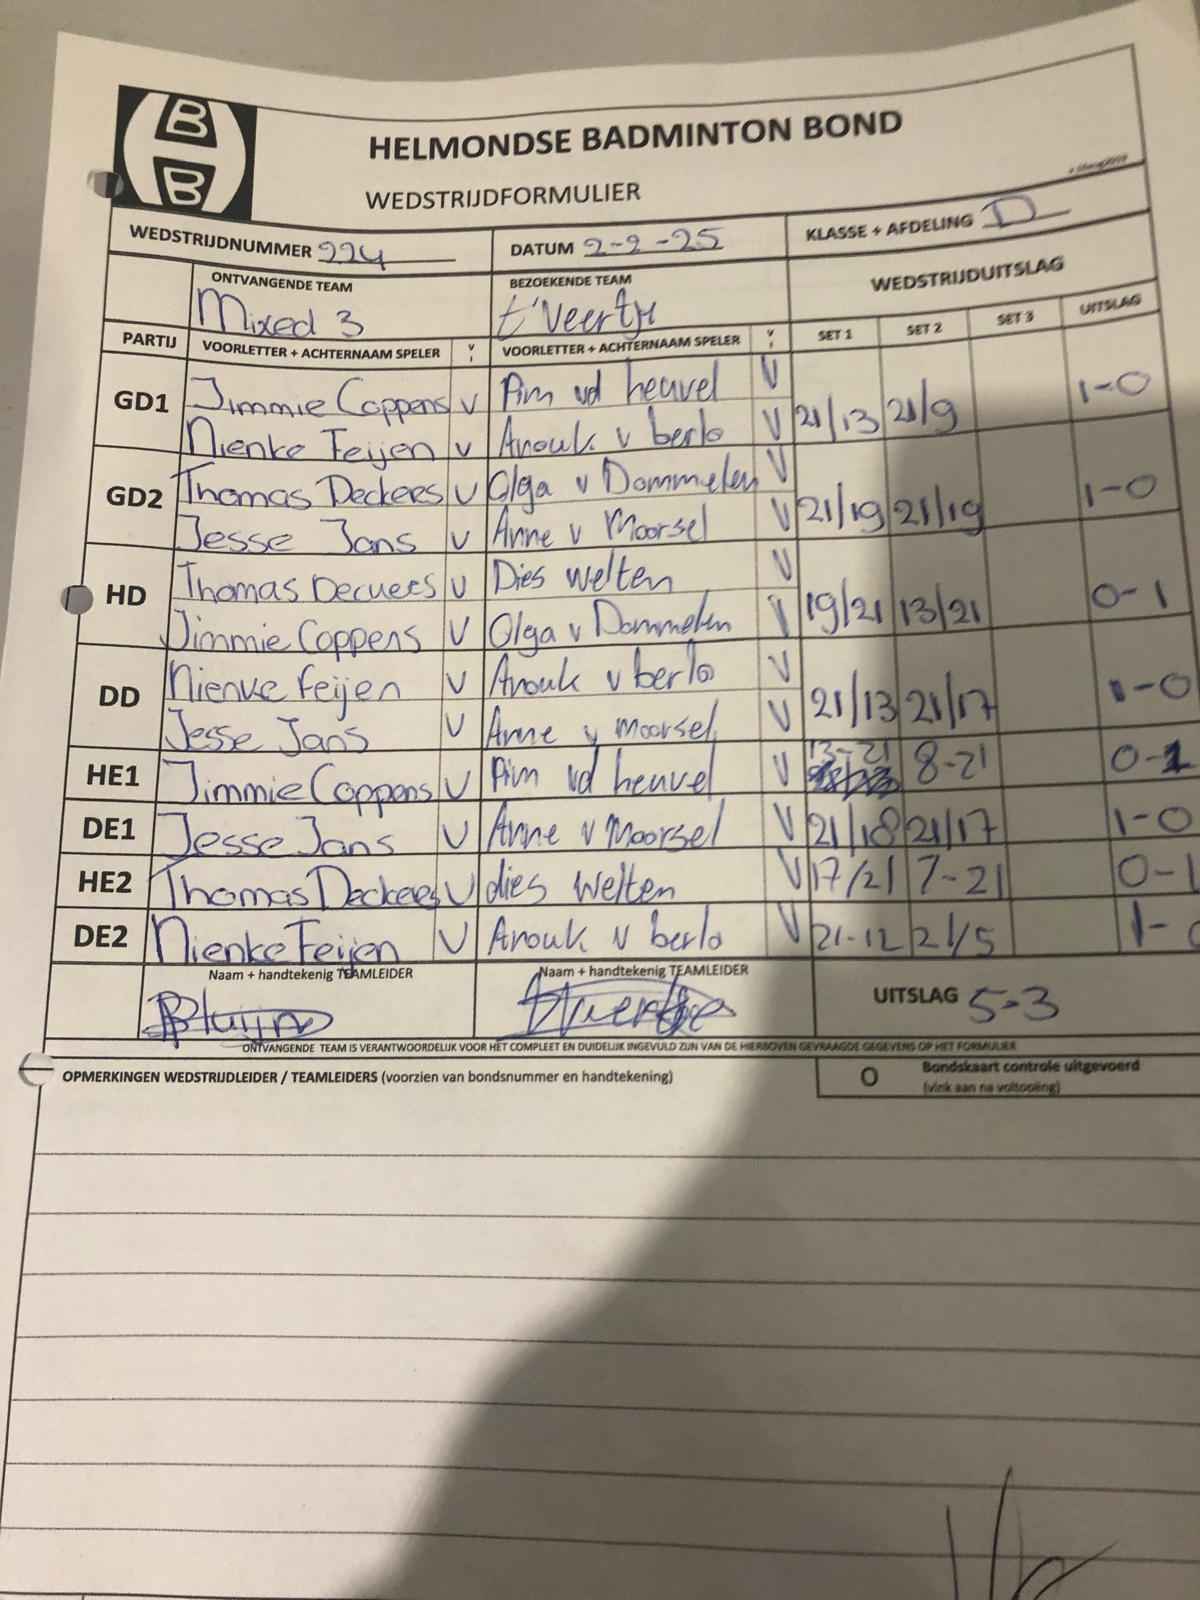 B
B
HELMONDSE BADMINTON BOND
WEDSTRIJDFORMULIER
WEDSTRIJDNUMMER 224 DATUM 2-2-25 KLASSE + AFDELING D
ONTVANGENDE TEAM BEZOEKENDE TEAM WEDSTRIJDUITSLAG
Mixed 3 t'Veertje
PARTIJ VOORLETTER + ACHTERNAAM SPELER V I VOORLETTER + ACHTERNAAM SPELER V I SET 1 SET 2 SET 3 UITSLAG
GD1 Jimmie Coppens V Pim vd heuvel V 21/13 21/9 1-0
Nienke Feijen V Anouk v berlo V
GD2 Thomas Deckers V Olga v Dommelen V 21/19 21/19 1-0
Jesse Jans V Anne v Moorsel V
HD Thomas Deckers V Dies Welten V 19/21 13/21 0-1
Jimmie Coppens V Olga v Dommelen V
DD Nienke Feijen V Anouk v berlo V 21/13 21/17 1-0
Jesse Jans V Anne v Moorsel V
HE1 Jimmie Coppens V Pim vd heuvel V 13-21 8-21 0-1
DE1 Jesse Jans V Anne v Moorsel V 21/18 21/17 1-0
HE2 Thomas Deckers V dies Welten V 17/21 7-21 0-1
DE2 Nienke Feijen V Anouk v berlo V 21-12 21/5 1-0
Naam + handtekenig TEAMLEIDER Naam + handtekenig TEAMLEIDER
UITSLAG 5-3
ONTVANGENDE TEAM IS VERANTWOORDELIJK VOOR HET COMPLEET EN DUIDELIJK INGEVULD ZIJN VAN DE HIERBOVEN GEVRAAGDE GEGEVENS OP HET FORMULIER
OPMERKINGEN WEDSTRIJDLEIDER / TEAMLEIDERS (voorzien van bondsnummer en handtekening) O Bondskaart controle uitgevoerd
(vink aan na voltooiing)